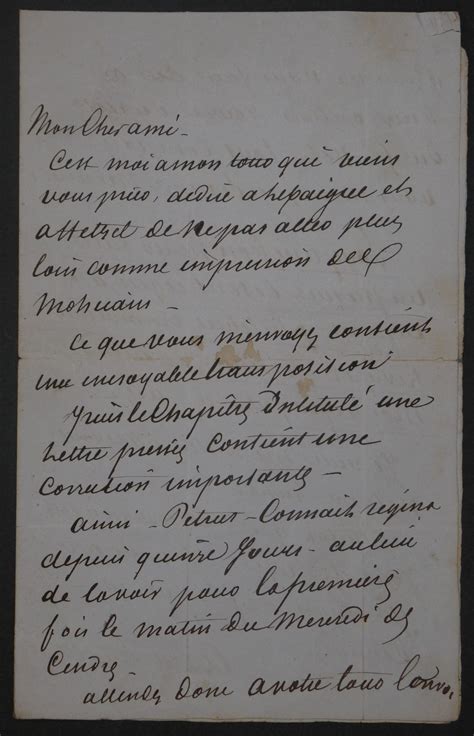 Mon Cher ami -
C'est moi a mon tour qui viens
vous prier, et
de ne pas aller plus
loin comme impression de
Mohicains -
Ce que vous m'envoyez contient
une incroyable transposition
Puis le Chapitre Intitulé une
Lettre contient une
correction importante -
ainsi - Petrus - Connait regina
depuis quinze Jours - au lieu
de la voir pour la premiere
fois le matin du Mercredi de
Cendre
attendez donc a votre tour